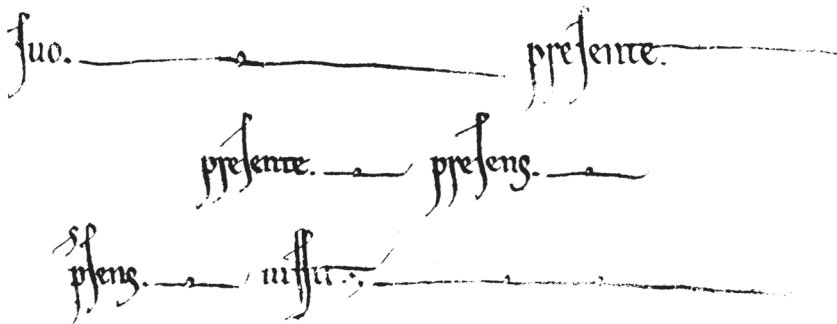 suo. presente.
presente. presens.
p̃sens. iussu